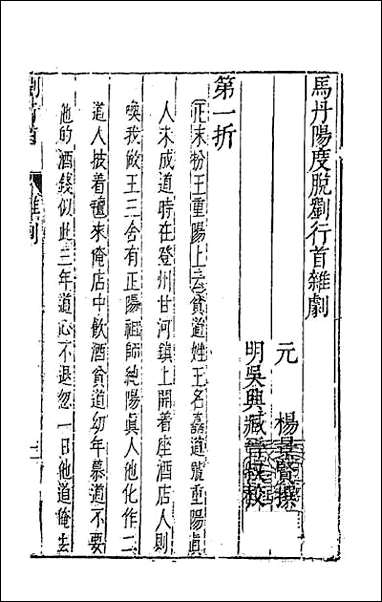 馬丹陽度脫劉行首雜劇
元　楊景賢撰
明吳興臧晉叔校
第一折
正末扮王重陽上云貧道姓王名嚞道號重陽眞
人未成道時在登州甘河鎮上開着座酒店人則
喚我做王三舍有正陽祖師純陽眞人他化作二
道人披着氊來俺店中飲酒貧道幼年慕道不要
他的酒錢似此三年道心不退忽一日他道俺去
雜劇